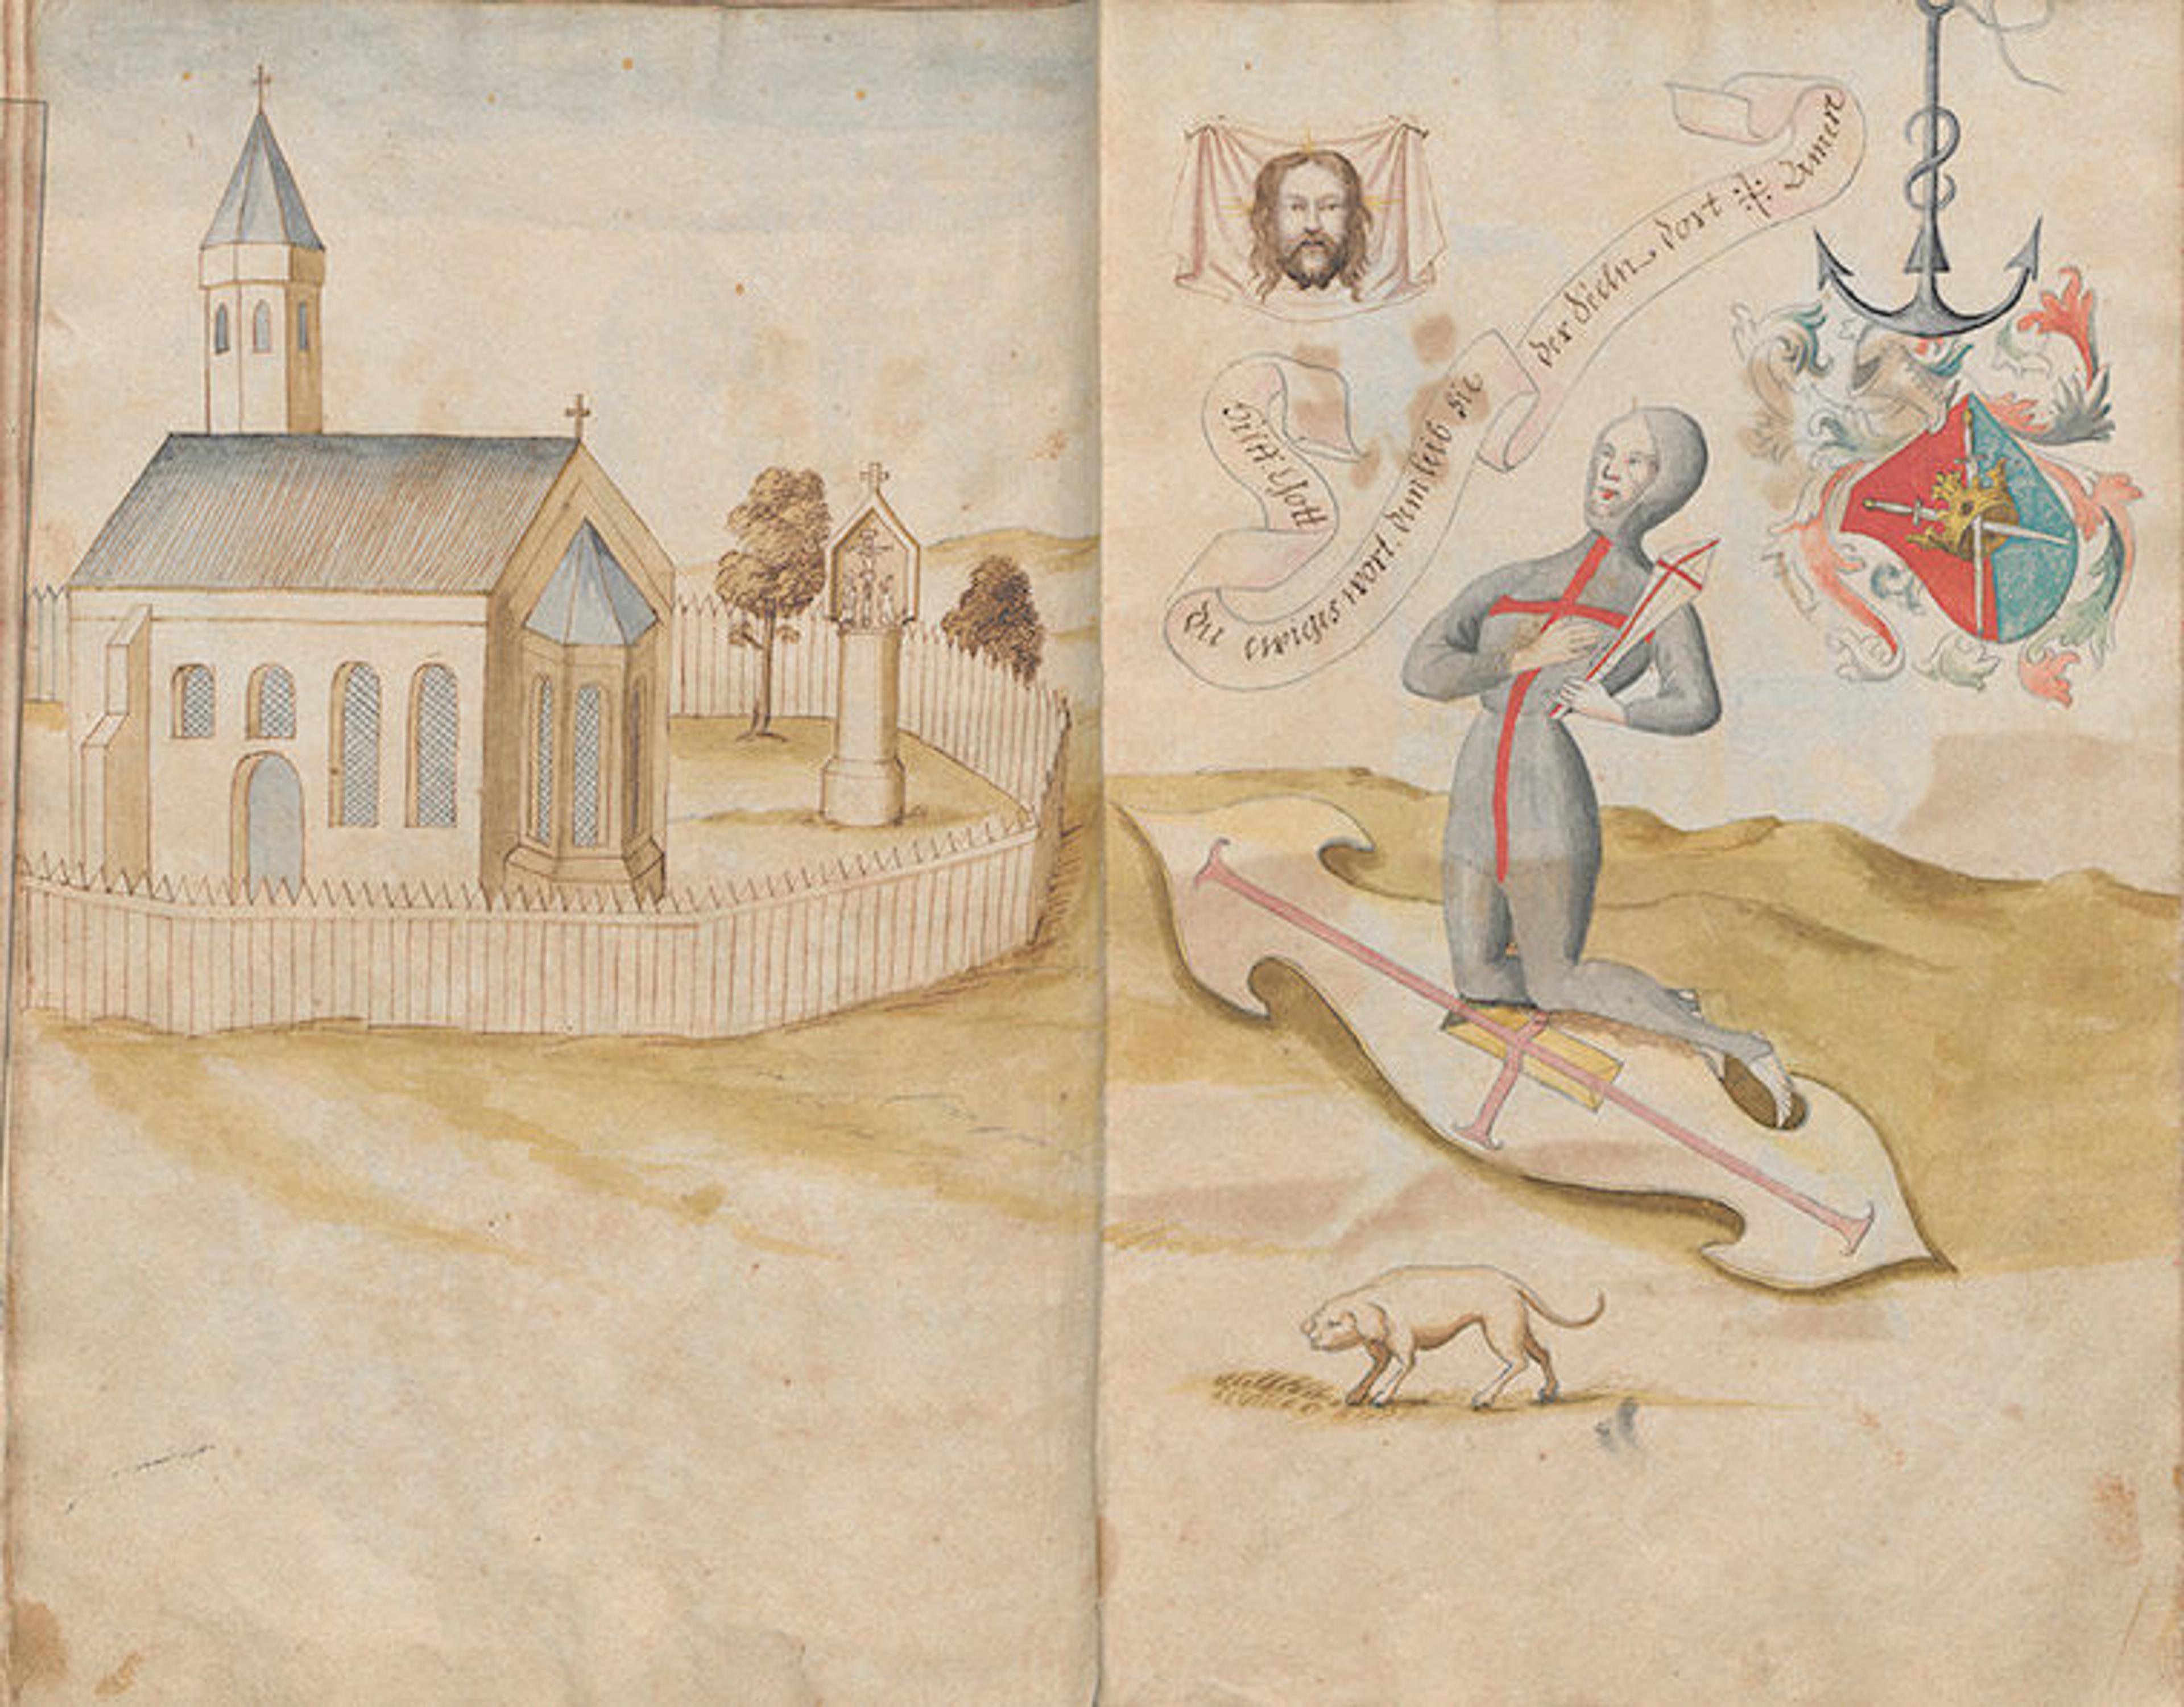 Hilff Gott
Du ewiges wort. dem leib hie
der Sieln. dort Amen